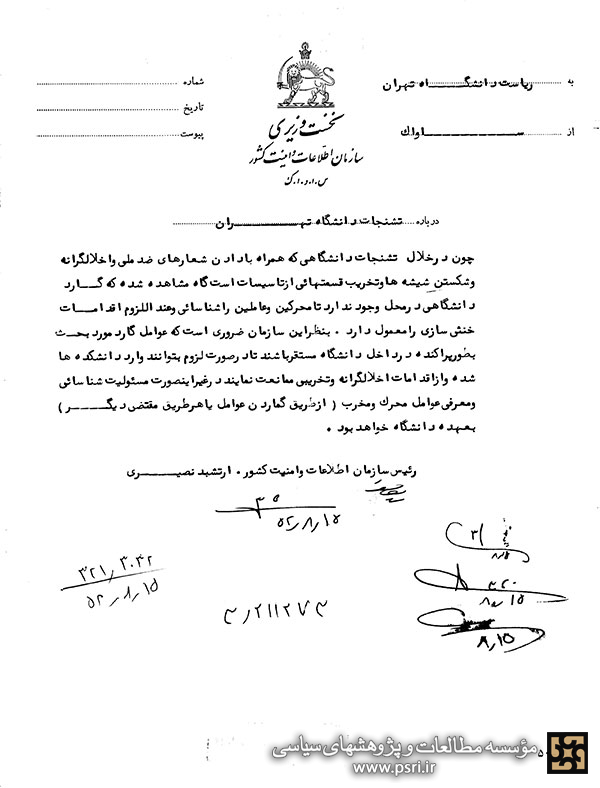 به ریاست دانشگاه تهران
از ساواک
نخست وزیری
سازمان اطلاعات و امنیت کشور
س.ا.و.ا.ک
شماره
تاریخ
پیوست
درباره تشنجات دانشگاه تهران
چون در خلال تشنجات دانشگاهی که همراه با دادن شعارهای ضد ملی و اخلالگرانه
وشکستن شیشه ها وتخریب قسمتهائی از تاسیسات است گاه مشاهده شده که گارد
دانشگاهی در محل وجود ندارد تا محرکین وعاملین را شناسائی وعند اللزوم اقدامات
خنثی سازی را معمول دارد . بنظر این سازمان ضروری است که عوامل گارد مورد بحث
بطور پراکنده در داخل دانشگاه مستقر باشند تا در صورت لزوم بتوانند وارد دانشکده ها
شده واز اقدامات اخلالگرانه وتخریبی ممانعت نمایند در غیر اینصورت مسئولیت شناسائی
ومعرفی عوامل محرک ومخرب ( از طریق گماردن عوامل یا هر طریق مقتضی دیگر )
بعهده دانشگاه خواهد بود .
رئیس سازمان اطلاعات وامنیت کشور . ارتشبد نصیری
۵۲/۸/۱۵
۳۲۱/۳۰۴۲
۵۲/۸/۱۵
۸/۱۵
۸/۱۵
مؤسسه مطالعات و پژوهشهای سیاسی
www.psri.ir